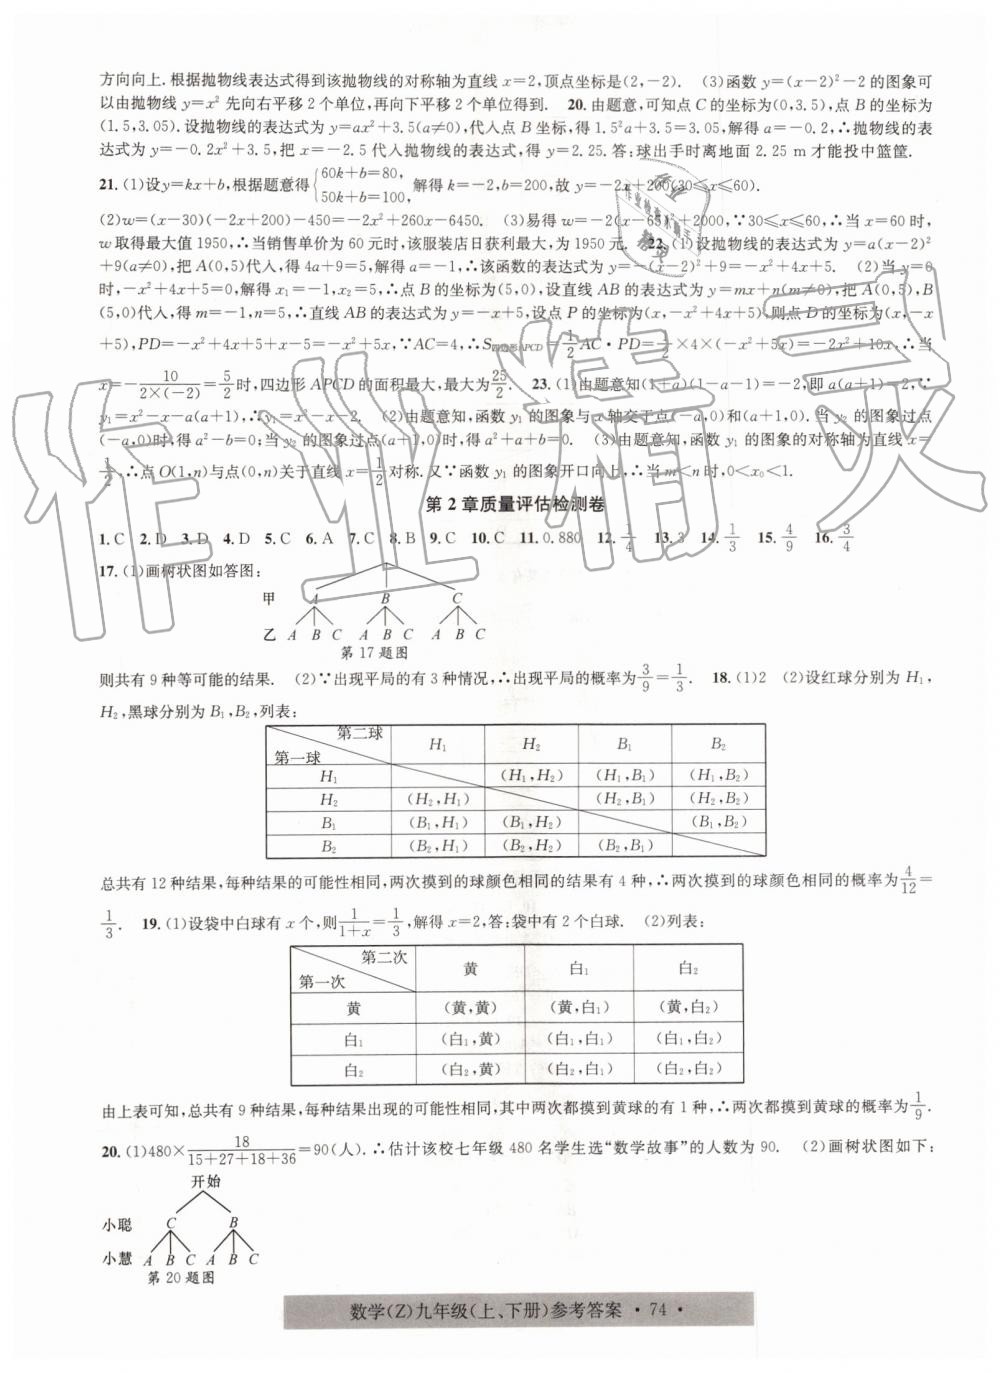 方向向上.根据抛物线表达式得到该抛物线的对称轴为直线 x=2,顶点坐标是(2,-2). (3)函数 y=(x-2)²-2 的图象可
以由抛物线 y=x² 先向右平移 2 个单位,再向下平移 2 个单位得到. 20.由题意,可知点 C 的坐标为(0,3.5),点 B 的坐标为
(1.5,3.05).设抛物线的表达式为 y=ax²+3.5(a≠0),代入点 B 坐标,得 1.5²a+3.5=3.05,解得 a=-0.2,∴抛物线的表
达式为 y=-0.2x²+3.5,把 x=-2.5 代入抛物线的表达式,得 y=2.25.答:球出手时离地面 2.25 m 才能投中篮筐.
21.(1)设 y=kx+b,根据题意得{60k+b=80, 50k+b=100, 解得 k=-2,b=200,故 y=-2x+200(30≤x≤60).
(2)w=(x-30)(-2x+200)-450=-2x²+260x-6450. (3)易得 w=-2(x-65)²+2000,∵30≤x≤60,∴当 x=60 时,
w 取得最大值 1950,∴当销售单价为 60 元时,该服装店日获利最大,为 1950 元. 22.(1)设抛物线的表达式为 y=a(x-2)²
+9(a≠0),把 A(0,5)代入,得 4a+9=5,解得 a=-1,∴该函数的表达式为 y=-(x-2)²+9=-x²+4x+5. (2)当 y=0
时,-x²+4x+5=0,解得 x₁=-1,x₂=5,∴点 B 的坐标为(5,0),设直线 AB 的表达式为 y=mx+n(m≠0),把 A(0,5),B
(5,0)代入,得 m=-1,n=5,∴直线 AB 的表达式为 y=-x+5,设点 P 的坐标为(x,-x²+4x+5),则点 D 的坐标为(x,-x
+5),PD=-x²+4x+5+x-5=-x²+5x,∵AC=4,∴S四边形APCD=1/2 AC·PD=1/2×4×(-x²+5x)=-2x²+10x,∴当
x=-10/(2×(-2))=5/2时,四边形 APCD 的面积最大,最大为25/2. 23.(1)由题意知(1+a)(1-a-1)=-2,即 a(a+1)=2,∵
y₁=x²-x-a(a+1),∴y₁=x²-x-2. (2)由题意知,函数 y₁ 的图象与 x 轴交于点(-a,0)和(a+1,0).当 y₂ 的图象过点
(-a,0)时,得 a²-b=0;当 y₂ 的图象过点(a+1,0)时,得 a²+a+b=0. (3)由题意知,函数 y₁ 的图象的对称轴为直线 x=
1/2,∴点 Q(1,n)与点(0,n)关于直线 x=1/2对称.又∵函数 y₁ 的图象开口向上,∴当 m<n 时,0<x₀<1.
第 2 章质量评估检测卷
1.C 2.D 3.D 4.D 5.C 6.A 7.C 8.B 9.C 10.C 11.0.880 12.1/4 13.3 14.1/3 15.4/9 16.3/4
17.(1)画树状图如答图:
甲 A B C
乙 A B C A B C A B C
第17题图
则共有 9 种等可能的结果. (2)∵出现平局的有 3 种情况,∴出现平局的概率为3/9=1/3. 18.(1)2 (2)设红球分别为 H₁,
H₂,黑球分别为 B₁,B₂,列表:
第二球 H₁ H₂ B₁ B₂
第一球
H₁ (H₁,H₂) (H₁,B₁) (H₁,B₂)
H₂ (H₂,H₁) (H₂,B₁) (H₂,B₂)
B₁ (B₁,H₁) (B₁,H₂) (B₁,B₂)
B₂ (B₂,H₁) (B₂,H₂) (B₂,B₁)
总共有 12 种结果,每种结果的可能性相同,两次摸到的球颜色相同的结果有 4 种,∴两次摸到的球颜色相同的概率为4/12=
1/3. 19.(1)设袋中白球有 x 个,则1/(1+x)=1/3,解得 x=2,答:袋中有 2 个白球. (2)列表:
第二次 黄 白₁ 白₂
第一次
黄 (黄,黄) (黄,白₁) (黄,白₂)
白₁ (白₁,黄) (白₁,白₁) (白₁,白₂)
白₂ (白₂,黄) (白₂,白₁) (白₂,白₂)
由上表可知,总共有 9 种结果,每种结果出现的可能性相同,其中两次都摸到黄球的有 1 种,∴两次都摸到黄球的概率为1/9.
20.(1)480×18/(15+27+18+36)=90(人).∴估计该校七年级 480 名学生选“数学故事”的人数为 90. (2)画树状图如下:
开始
小聪 C B
小慧 A B C A B C
第20题图
数学(Z)九年级(上、下册)参考答案 · 74 ·
作业精灵